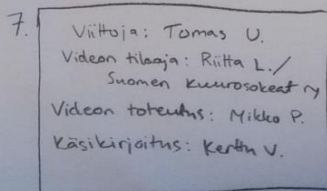 7.
Viittoja: Tomas U.
Videon tilaaja: Riitta L./
Suomen kuurosokeat ry
Videon toteutus: Mikko P.
Käsikirjoitus: Kerttu V.